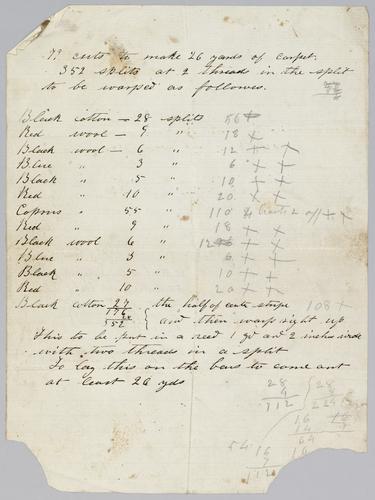 79 cuts to make 26 yards of carpet.
352 splits at 2 threads in the split
to be warped as follows.
Black cotton — 28 splits 56 +
Red wool — 9 " 18 +
Black wool — 6 " 12 + +
Blue " 3 " 6 + +
Black " 5 " 10 + +
Red " 10 " 20 + +
Coprus " 55 " 110 & 2 off + +
Red " 9 " 18 + +
Black wool 6 " 12 + +
Blue " 3 " 6 + +
Black " 5 " 10 + +
Red " 10 " 20 + +
Black cotton 27 the half of center stripe 108 +
176
352 and then warp right up
This to be put in a reed 1 yd and 2 inches wide
with two threads in a split
To lay this on the bars to come out
at least 26 yds
28 28
4
112 224
16
14
64
54 16
7
112